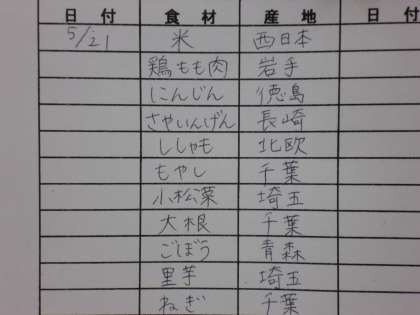 日付 食材 産地 日付
5/21 米 西日本
鶏もも肉 岩手
にんじん 徳島
さやいんげん 長崎
ししゃも 北欧
もやし 千葉
小松菜 埼玉
大根 千葉
ごぼう 青森
里芋 埼玉
ねぎ 千葉